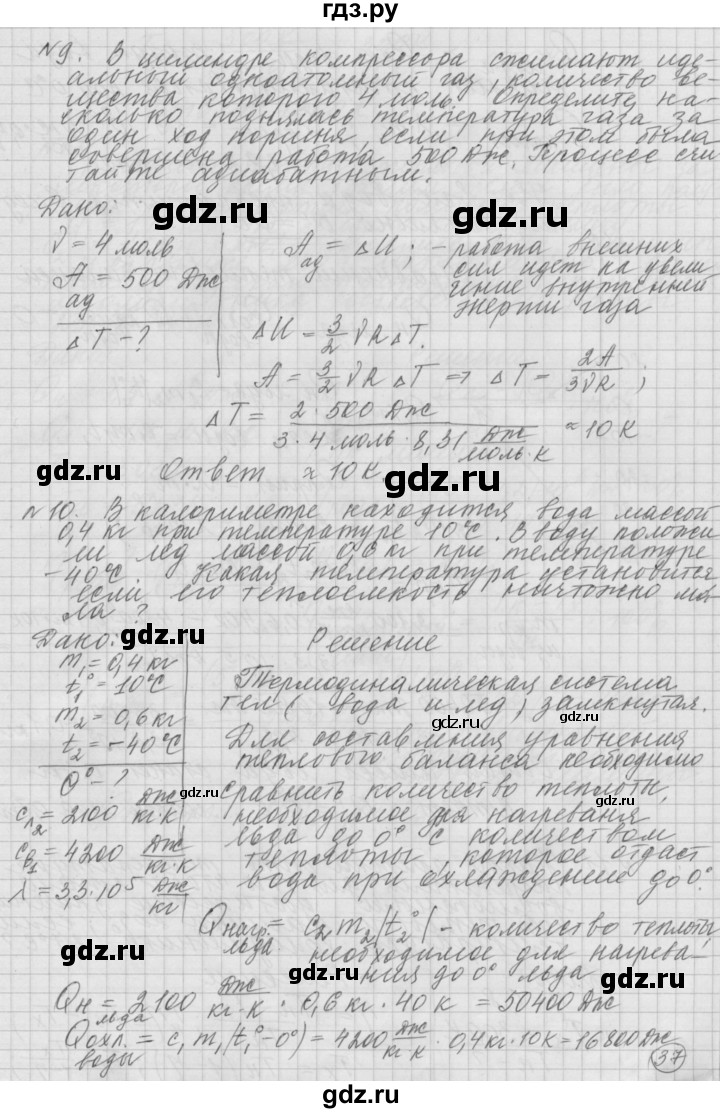 гдз.ру
№9. В цилиндре компрессора сжимают иде-
альный одноатомный газ, количество ве-
щества которого 4 моль. Определите, на-
сколько поднялась температура газа за
один ход поршня, если при этом была
совершена работа 500 Дж. Процесс счи-
тайте адиабатным.
Дано:
gdz.ru gdz.ru
ν = 4 моль
A ад = 500 Дж
ΔT - ?
A ад = ΔU; - работа внешних
сил идет на увели-
чение внутренней
энергии газа
ΔU = 3/2 νRΔT.
A = 3/2 νRΔT ⇒ ΔT = 2A/3νR;
ΔT = 2·500 Дж / 3·4 моль·8,31 Дж/моль·К ≈ 10 К
Ответ ≈ 10 К.
gdz.ru gdz.ru
№10. В калориметре находится вода массой
0,4 кг при температуре 10°С. В воду положи
ли лед массой 0,6 кг при температуре
-40°С. Какая температура установится
если его теплоемкость ничтожно ма-
ла?
Дано: gdz.ru Решение
m₁ = 0,4 кг
t₁° = 10°С
m₂ = 0,6 кг
t₂ = -40°С
Θ° - ?
c л2 = 2100 Дж/кг·К
c в1 = 4200 Дж/кг·К
λ = 3,3·10⁵ Дж/кг
Термодинамическая система
тел (вода и лед) замкнутая.
gdz.ru gdz.ru
Для составления уравнения
теплового баланса необходимо
сравнить количество теплоты,
gdz.ru gdz.ru
необходимое для нагреваня
льда до 0° с количеством
теплоты, которое отдаст
вода при охлаждение до 0°.
Qнагр. льда = c₂m₂|t₂°| - количество теплоты,
необходимое для нагрева-
ния до 0° льда
gdz.ru gdz.ru
gdz.ru gdz.ru
Qн льда = 2100 Дж/кг·К · 0,6 кг · 40 К = 50400 Дж
Qохл. воды = c₁m₁(t₁° - 0°) = 4200 Дж/кг·К · 0,4 кг·10К = 16800 Дж
37
gdz.ru gdz.ru
гдз.ру